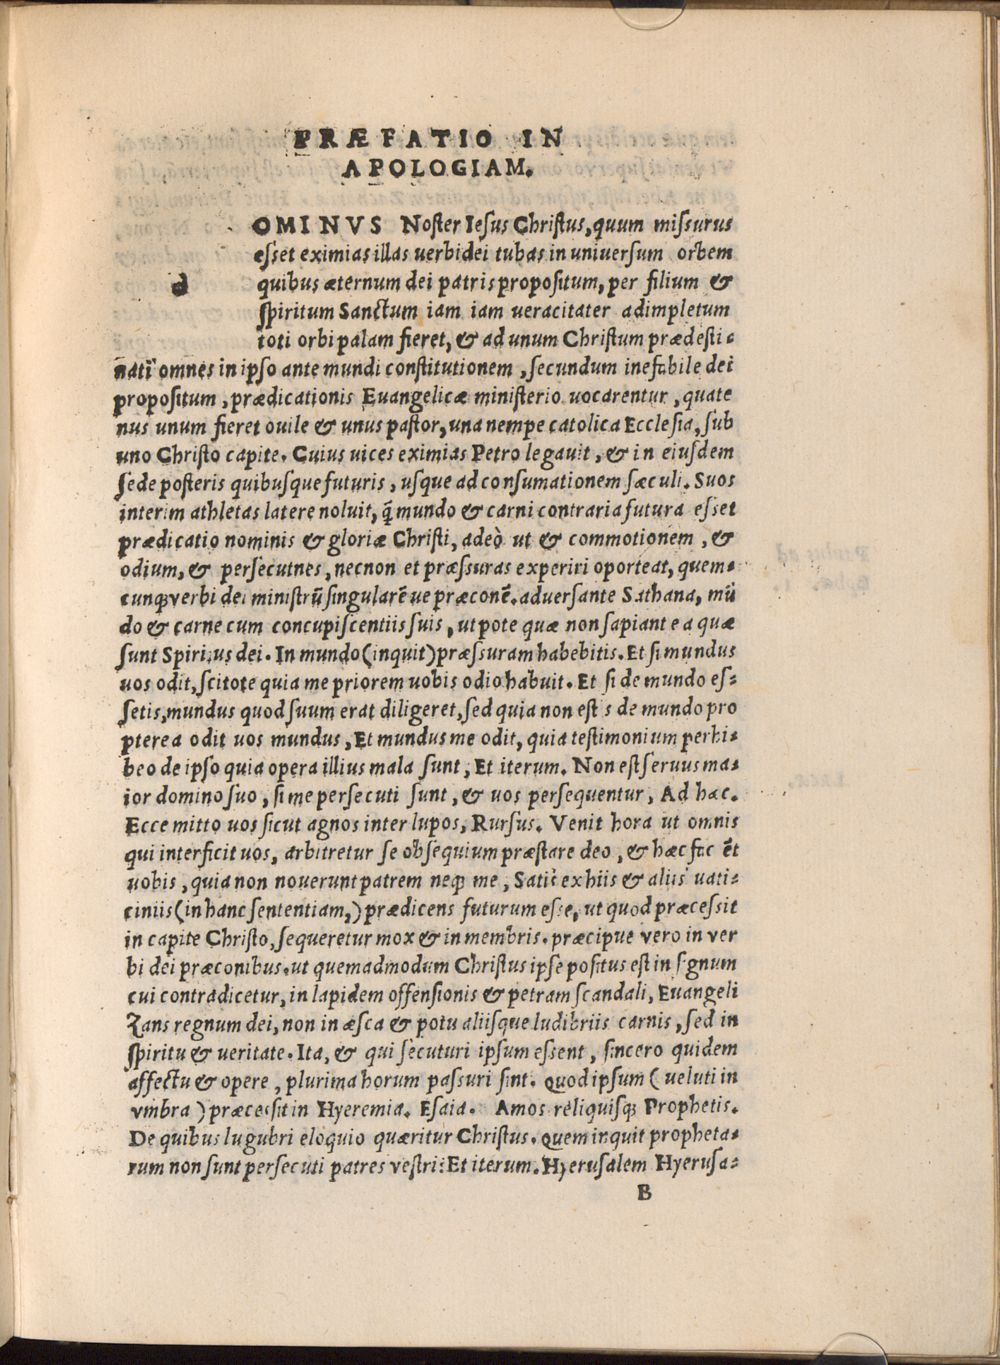 PRÆFATIO IN
APOLOGIAM.
d OMINVS Noster Iesus Christus, quum missurus
esset eximias illas uerbi dei tubas in uniuersum orbem
quibus æternum dei patris propositum, per filium &
spiritum Sanctum iam iam ueracitater adimpletum
toti orbi palam fieret, & ad unum Christum prædesti-
nati omnes in ipso ante mundi constitutionem, secundum inefabile dei
propositum, prædicationis Euangelicæ ministerio uocarentur, quate
nus unum fieret ouile & unus pastor, una nempe catolica Ecclesia, sub
uno Christo capite. Cuius uices eximias Petro legauit, & in eiusdem
sede posteris quibusque futuris, usque ad consumationem sæculi. Suos
interim athletas latere noluit, q̃ mundo & carni contraria futura esset
prædicatio nominis & gloriæ Christi, adeò ut & commotionem, &
odium, & persecutnes, necnon et præssuras experiri oporteat, quem-
cunq; verbi dei ministrũ singularẽ ue præconẽ. aduersante Sathana, mũ
do & carne cum concupiscentiis suis, utpote quæ non sapiant ea quæ
sunt Spiritus dei. In mundo (inquit) præssuram habebitis. Et si mundus
uos odit, scitote quia me priorem uobis odio habuit. Et si de mundo es-
setis, mundus quod suum erat diligeret, sed quia non estis de mundo pro
pterea odit uos mundus, Et mundus me odit, quia testimonium perhi-
beo de ipso quia opera illius mala sunt, Et iterum. Non est seruus ma-
ior domino suo, si me persecuti sunt, & uos persequentur, Ad hæc.
Ecce mitto uos sicut agnos inter lupos, Rursus. Venit hora ut omnis
qui interficit uos, arbitretur se obsequium præstare deo, & hæc facẽt
uobis, quia non nouerunt patrem neq; me, Satis ex hiis & aliis uati-
ciniis (in hanc sententiam,) prædicens futurum esse, ut quod præcessit
in capite Christo, sequeretur mox & in membris. præcipue vero in ver
bi dei præconibus. ut quemadmodum Christus ipse positus est in signum
cui contradicetur, in lapidem offensionis & petram scandali, Euangeli
Zans regnum dei, non in æsca & potu aliisque ludibriis carnis, sed in
spiritu & ueritate. Ita, & qui secuturi ipsum essent, sincero quidem
affectu & opere, plurima horum passuri sint. Quod ipsum (ueluti in
vmbra) præcessit in Hyeremia. Esaia. Amos reliquisq; Prophetis.
De quibus lugubri eloquio quæritur Christus. Quem inquit propheta-
rum non sunt persecuti patres vestri: Et iterum. Hyerusalem Hyerusa-
B